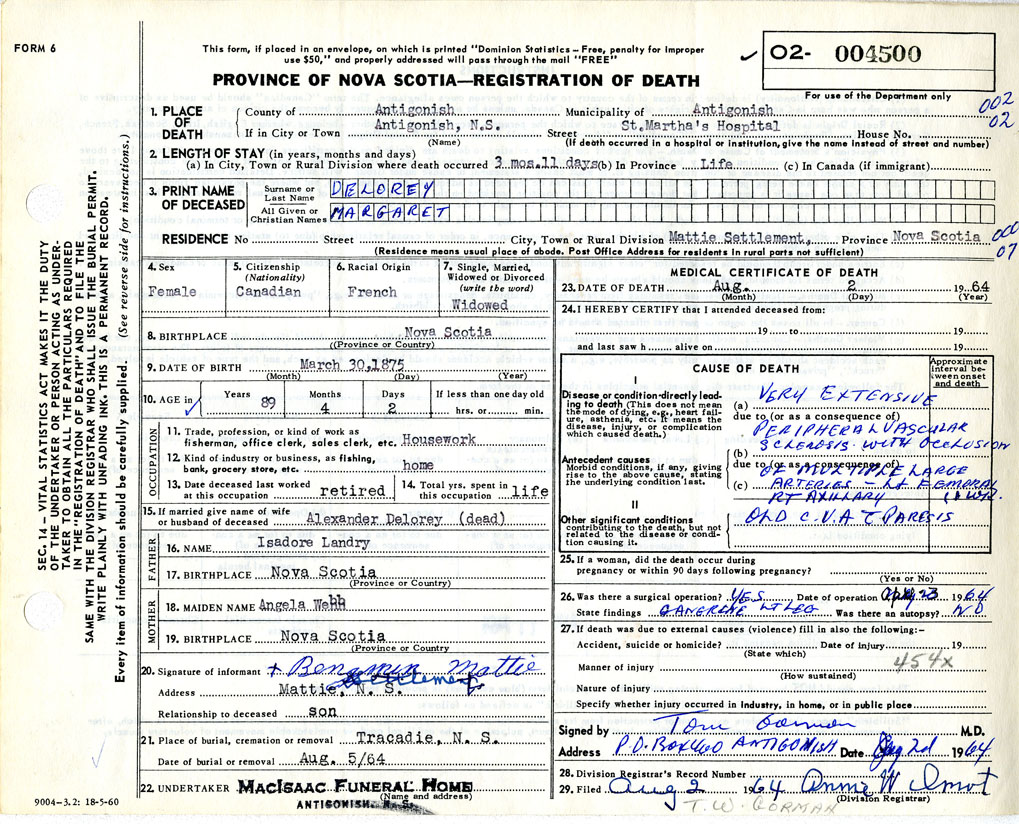 FORM 6
This form, if placed in an envelope, on which is printed "Dominion Statistics – Free, penalty for improper
use $50," and properly addressed will pass through the mail "FREE"
PROVINCE OF NOVA SCOTIA—REGISTRATION OF DEATH
✓ 02- 004500
For use of the Department only
002
02
1. PLACE OF DEATH
County of Antigonish Municipality of Antigonish
If in City or Town Antigonish, N.S. Street St.Martha's Hospital House No.
(Name) (If death occurred in a hospital or institution, give the name instead of street and number)
2. LENGTH OF STAY (in years, months and days)
(a) In City, Town or Rural Division where death occurred 3 mos.11 days (b) In Province Life (c) In Canada (if immigrant)
3. PRINT NAME OF DECEASED
Surname or Last Name DELOREY
All Given or Christian Names MARGARET
RESIDENCE No Street City, Town or Rural Division Mattie Settlement, Province Nova Scotia
(Residence means usual place of abode. Post Office Address for residents in rural parts not sufficient)
07
4. Sex
Female
5. Citizenship
(Nationality)
Canadian
6. Racial Origin
French
7. Single, Married,
Widowed or Divorced
(write the word)
Widowed
8. BIRTHPLACE Nova Scotia
((Province or Country)
9. DATE OF BIRTH March 30,1875
(Month) (Day) (Year)
10. AGE in ✓
Years 89
Months 4
Days 2
If less than one day old
hrs. or min.
OCCUPATION
11. Trade, profession, or kind of work as
fisherman, office clerk, sales clerk, etc. Housework
12. Kind of industry or business, as fishing,
bank, grocery store, etc. home
13. Date deceased last worked
at this occupation retired
14. Total yrs. spent in
this occupation life
15. If married give name of wife
or husband of deceased Alexander Delorey (dead)
FATHER
16. NAME Isadore Landry
17. BIRTHPLACE Nova Scotia
(Province or Country)
MOTHER
18. MAIDEN NAME Angela Webb
19. BIRTHPLACE Nova Scotia
(Province or Country)
20. Signature of informant + Benjamin Mattie
Settlement
Address Mattie, N. S.
Relationship to deceased son
21. Place of burial, cremation or removal Tracadie, N. S.
Date of burial or removal Aug. 5/64
22. UNDERTAKER MacIsaac Funeral Home
(Name and address)
ANTIGONISH, N.S.
MEDICAL CERTIFICATE OF DEATH
23. DATE OF DEATH Aug. 2 1964
(Month) (Day) (Year)
24. I HEREBY CERTIFY that I attended deceased from:
19 to 19
and last saw h alive on 19
CAUSE OF DEATH
Approximate
interval be-
tween onset
and death
I
Disease or condition directly lead-
ing to death (This does not mean
the mode of dying, e.g., heart fail-
ure, asthenia, etc. It means the
disease, injury, or complication
which caused death.)
(a) VERY EXTENSIVE
due to (or as a consequence of)
PERIPHERAL VASCULAR
SCLEROSIS WITH OCCLUSION
Antecedent causes
Morbid conditions, if any, giving
rise to the above cause, stating
the underlying condition last.
(b)
due to (or as a consequence of)
OF MULTIPLE LARGE
(c) ARTERIES - LT FEMORAL
RT AXILLARY
II
Other significant conditions
contributing to the death, but not
related to the disease or condi-
tion causing it.
OLD C.V.A C̄ PARESIS
25. If a woman, did the death occur during
pregnancy or within 90 days following pregnancy?
(Yes or No)
26. Was there a surgical operation? YES Date of operation 23 1964
State findings GANGRENE LT LEG Was there an autopsy? NO
27. If death was due to external causes (violence) fill in also the following:–
Accident, suicide or homicide? Date of injury 19
(State which)
454x
Manner of injury
(How sustained)
Nature of injury
Specify whether injury occurred in industry, in home, or in public place
Signed by Tom Gorman M.D.
Address P.O. BOX ANTIGONISH Date Aug 2d 1964
28. Division Registrar's Record Number
29. Filed Aug 2 1964 Annie W
(Division Registrar)
T. W. GORMAN
SEC. 14– VITAL STATISTICS ACT MAKES IT THE DUTY
OF THE UNDERTAKER OR PERSON ACTING AS UNDER-
TAKER TO OBTAIN ALL THE PARTICULARS REQUIRED
IN THE "REGISTRATION OF DEATH" AND TO FILE THE
SAME WITH THE DIVISION REGISTRAR WHO SHALL ISSUE THE BURIAL PERMIT.
WRITE PLAINLY WITH UNFADING INK. THIS IS A PERMANENT RECORD.
Every item of information should be carefully supplied. (See reverse side for instructions.)
✓
9004-3.2: 18-5-60